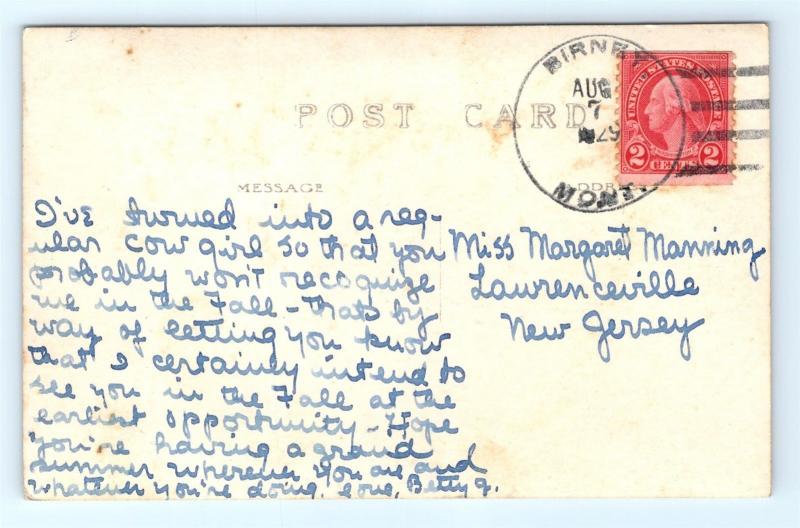 BIRNEY
AUG
7
1929
MONT.
UNITED STATES POSTAGE
2 CENTS 2
POST CARD
MESSAGE
I've turned into a reg-
ular cow girl so that you
probably won't recognize
me in the Fall - thats by
way of letting you know
that I certainly intend to
see you in the Fall at the
earliest opportunity - Hope
you're having a grand
summer wherever you are and
whatever you're doing. love, Betty J.
Miss Margaret Manning
Lawrenceville
New Jersey